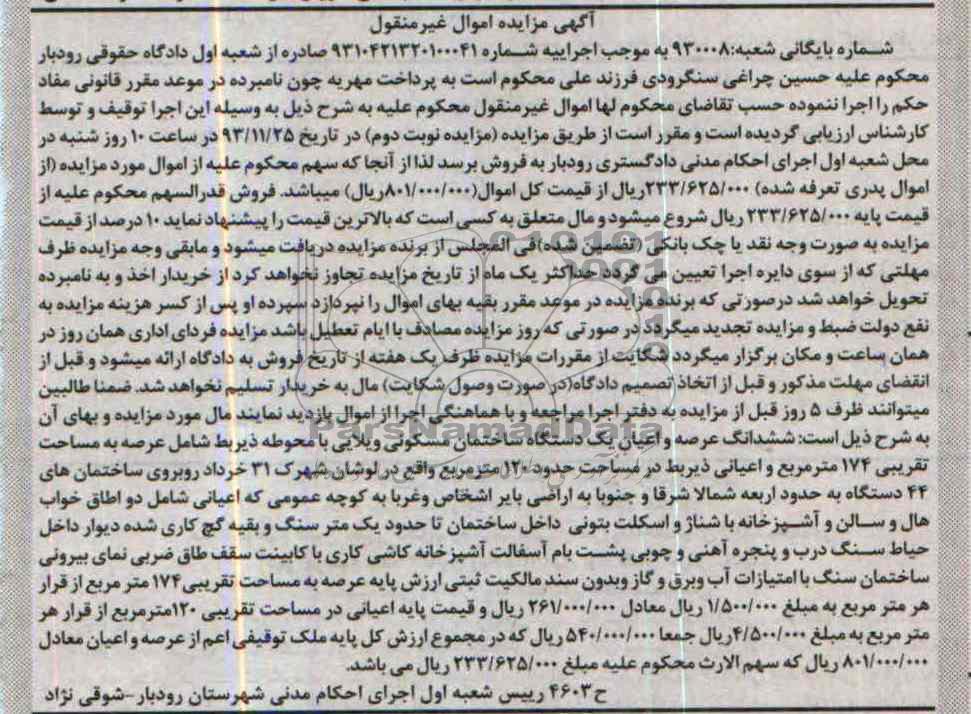 آگهی مزایده اموال غیرمنقول
شماره بایگانی شعبه:۹۳۰۰۰۸ به موجب اجراییه شماره ۹۳۱۰۴۲۱۳۲۰۱۰۰۰۴۱ صادره از شعبه اول دادگاه حقوقی رودبار
محکوم علیه حسین چراغی سنگرودی فرزند علی محکوم است به پرداخت مهریه چون نامبرده در موعد مقرر قانونی مفاد
حکم را اجرا ننموده حسب تقاضای محکوم لها اموال غیرمنقول محکوم علیه به شرح ذیل به وسیله این اجرا توقیف و توسط
کارشناس ارزیابی گردیده است و مقرر است از طریق مزایده (مزایده نوبت دوم) در تاریخ ۹۳/۱۱/۲۵ در ساعت ۱۰ روز شنبه در
محل شعبه اول اجرای احکام مدنی دادگستری رودبار به فروش برسد لذا از آنجا که سهم محکوم علیه از اموال مورد مزایده (از
اموال پدری تعرفه شده) ۲۳۳/۶۲۵/۰۰۰ریال از قیمت کل اموال(۸۰۱/۰۰۰/۰۰۰ریال) میباشد. فروش قدرالسهم محکوم علیه از
قیمت پایه ۲۳۳/۶۲۵/۰۰۰ ریال شروع میشود و مال متعلق به کسی است که بالاترین قیمت را پیشنهاد نماید ۱۰ درصد از قیمت
مزایده به صورت وجه نقد یا چک بانکی (تضمین شده)فی المجلس از برنده مزایده دریافت میشود و مابقی وجه مزایده ظرف
مهلتی که از سوی دایره اجرا تعیین می گردد حداکثر یک ماه از تاریخ مزایده تجاوز نخواهد کرد از خریدار اخذ و به نامبرده
تحویل خواهد شد درصورتی که برنده مزایده در موعد مقرر بقیه بهای اموال را نپردازد سپرده او پس از کسر هزینه مزایده به
نفع دولت ضبط و مزایده تجدید میگردد در صورتی که روز مزایده مصادف با ایام تعطیل باشد مزایده فردای اداری همان روز در
همان ساعت و مکان برگزار میگردد شکایت از مقررات مزایده ظرف یک هفته از تاریخ فروش به دادگاه ارائه میشود و قبل از
انقضای مهلت مذکور و قبل از اتخاذ تصمیم دادگاه(در صورت وصول شکایت) مال به خریدار تسلیم نخواهد شد. ضمنا طالبین
میتوانند ظرف ۵ روز قبل از مزایده به دفتر اجرا مراجعه و با هماهنگی اجرا از اموال بازدید نمایند مال مورد مزایده و بهای آن
به شرح ذیل است: ششدانگ عرصه و اعیان یک دستگاه ساختمان مسکونی ویلایی با محوطه ذیربط شامل عرصه به مساحت
تقریبی ۱۷۴ مترمربع و اعیانی ذیربط در مساحت حدود ۱۲۰ مترمربع واقع در لوشان شهرک ۳۱ خرداد روبروی ساختمان های
۴۴ دستگاه به حدود اربعه شمالا شرقا و جنوبا به اراضی بایر اشخاص وغربا به کوچه عمومی که اعیانی شامل دو اطاق خواب
هال و سالن و آشپزخانه با شناژ و اسکلت بتونی داخل ساختمان تا حدود یک متر سنگ و بقیه گچ کاری شده دیوار داخل
حیاط سنگ درب و پنجره آهنی و چوبی پشت بام آسفالت آشپزخانه کاشی کاری با کابینت سقف طاق ضربی نمای بیرونی
ساختمان سنگ با امتیازات آب وبرق و گاز وبدون سند مالکیت ثبتی ارزش پایه عرصه به مساحت تقریبی۱۷۴ متر مربع از قرار
هر متر مربع به مبلغ ۱/۵۰۰/۰۰۰ ریال معادل ۲۶۱/۰۰۰/۰۰۰ ریال و قیمت پایه اعیانی در مساحت تقریبی ۱۲۰مترمربع از قرار هر
متر مربع به مبلغ ۴/۵۰۰/۰۰۰ریال جمعا ۵۴۰/۰۰۰/۰۰۰ ریال که در مجموع ارزش کل پایه ملک توقیفی اعم از عرصه و اعیان معادل
۸۰۱/۰۰۰/۰۰۰ ریال که سهم الارث محکوم علیه مبلغ ۲۳۳/۶۲۵/۰۰۰ ریال می باشد.
ح۴۶۰۳ رییس شعبه اول اجرای احکام مدنی شهرستان رودبار-شوقی نژاد
ParsNamadData